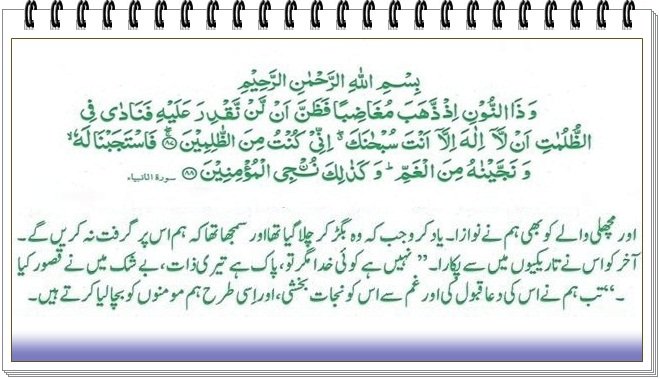 بِسْمِ اللهِ الرَّحْمٰنِ الرَّحِيْمِ
وَ ذَا النُّوْنِ اِذْ ذَّهَبَ مُغَاضِبًا فَظَنَّ اَنْ لَّنْ نَّقْدِرَ عَلَيْهِ فَنَادٰى فِى
الظُّلُمٰتِ اَنْ لَّاۤ اِلٰهَ اِلَّاۤ اَنْتَ سُبْحٰنَكَ ۖ اِنِّىْ كُنْتُ مِنَ الظّٰلِمِيْنَ ﴿۸۷﴾ فَاسْتَجَبْنَا لَهٗ ۙ
وَ نَجَّيْنٰهُ مِنَ الْغَمِّ ؕ وَ كَذٰلِكَ نُـنْجِى الْمُؤْمِنِيْنَ ﴿۸۸﴾ سورة الانبیاء
اور مچھلی والے کو بھی ہم نے نوازا۔ یاد کرو جب کہ وہ بگڑ کر چلا گیا تھا اور سمجھا تھا کہ ہم اس پر گرفت نہ کریں گے۔
آخر کو اس نے تاریکیوں میں سے پکارا۔ ’’نہیں ہے کوئی خدا مگر تو، پاک ہے تیری ذات، بے شک میں نے قصور کیا
۔‘‘ تب ہم نے اس کی دعا قبول کی اور غم سے اس کو نجات بخشی، اور اِسی طرح ہم مومنوں کو بچا لیا کرتے ہیں۔